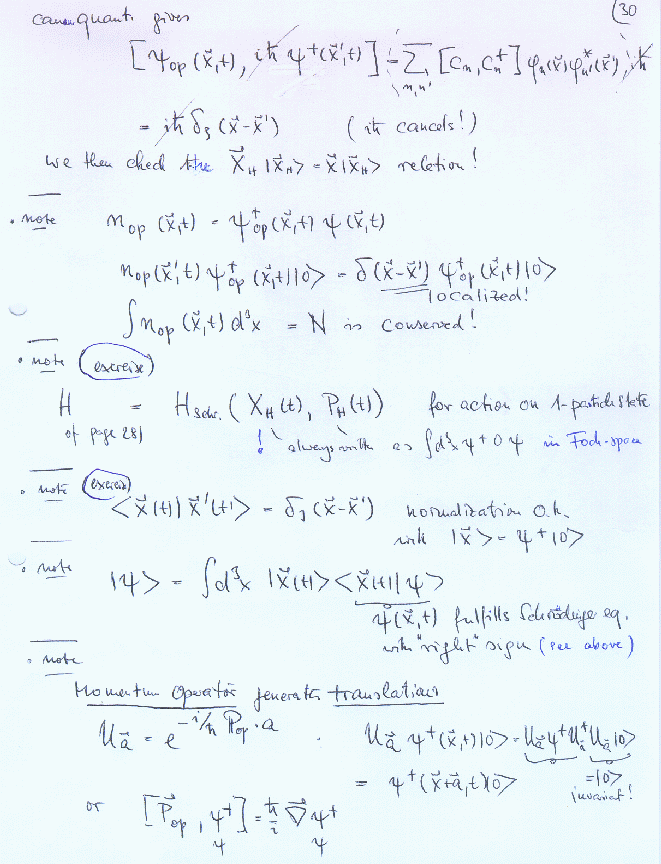 (30
canon. quanti gives
[ψ_op (x⃗,t), iħ ψ†(x⃗',t)] = Σ_{n,n'} [c_n, c_n†] φ_n(x⃗) φ*_n'(x⃗') iħ
= iħ δ₃ (x⃗-x⃗') (iħ cancels!)
we then check the X⃗_H |x_H> = x⃗|x_H> relation!
• note n_op (x⃗,t) = ψ†_op(x⃗,t) ψ(x⃗,t)
n_op(x⃗',t) ψ†_op (x⃗,t)|0> = δ(x⃗-x⃗') ψ†_op(x⃗,t)|0>
localized!
∫ n_op (x⃗,t) d³x = N is conserved!
• note (exercise)
H = H_schr. ( X_H(t), P_H(t)) for action on 1-particle state
of page 28) ! always written as ∫d³x ψ† O ψ in Fock-space
• note (exercise)
<x⃗(t)| x⃗'(t)> = δ₃ (x⃗-x⃗') normalization o.k.
with |x⃗> = ψ†|0>
• note |ψ> = ∫d³x |x⃗(t)> <x⃗(t)|ψ>
ψ(x⃗,t) fulfills Schrödinger eq.
with "right" sign (see above)
• note
Momentum operator generates translations
U_a⃗ = e^{-i/ħ P_op · a} . U_a⃗ ψ†(x⃗,t)|0> = U_a⃗ ψ† U_a⃗† U_a⃗ |0>
= ψ†(x⃗+a⃗,t)|0> =|0>
invariant!
or [P⃗_op, ψ†] = ħ/i ∇⃗ ψ†
ψ ψ